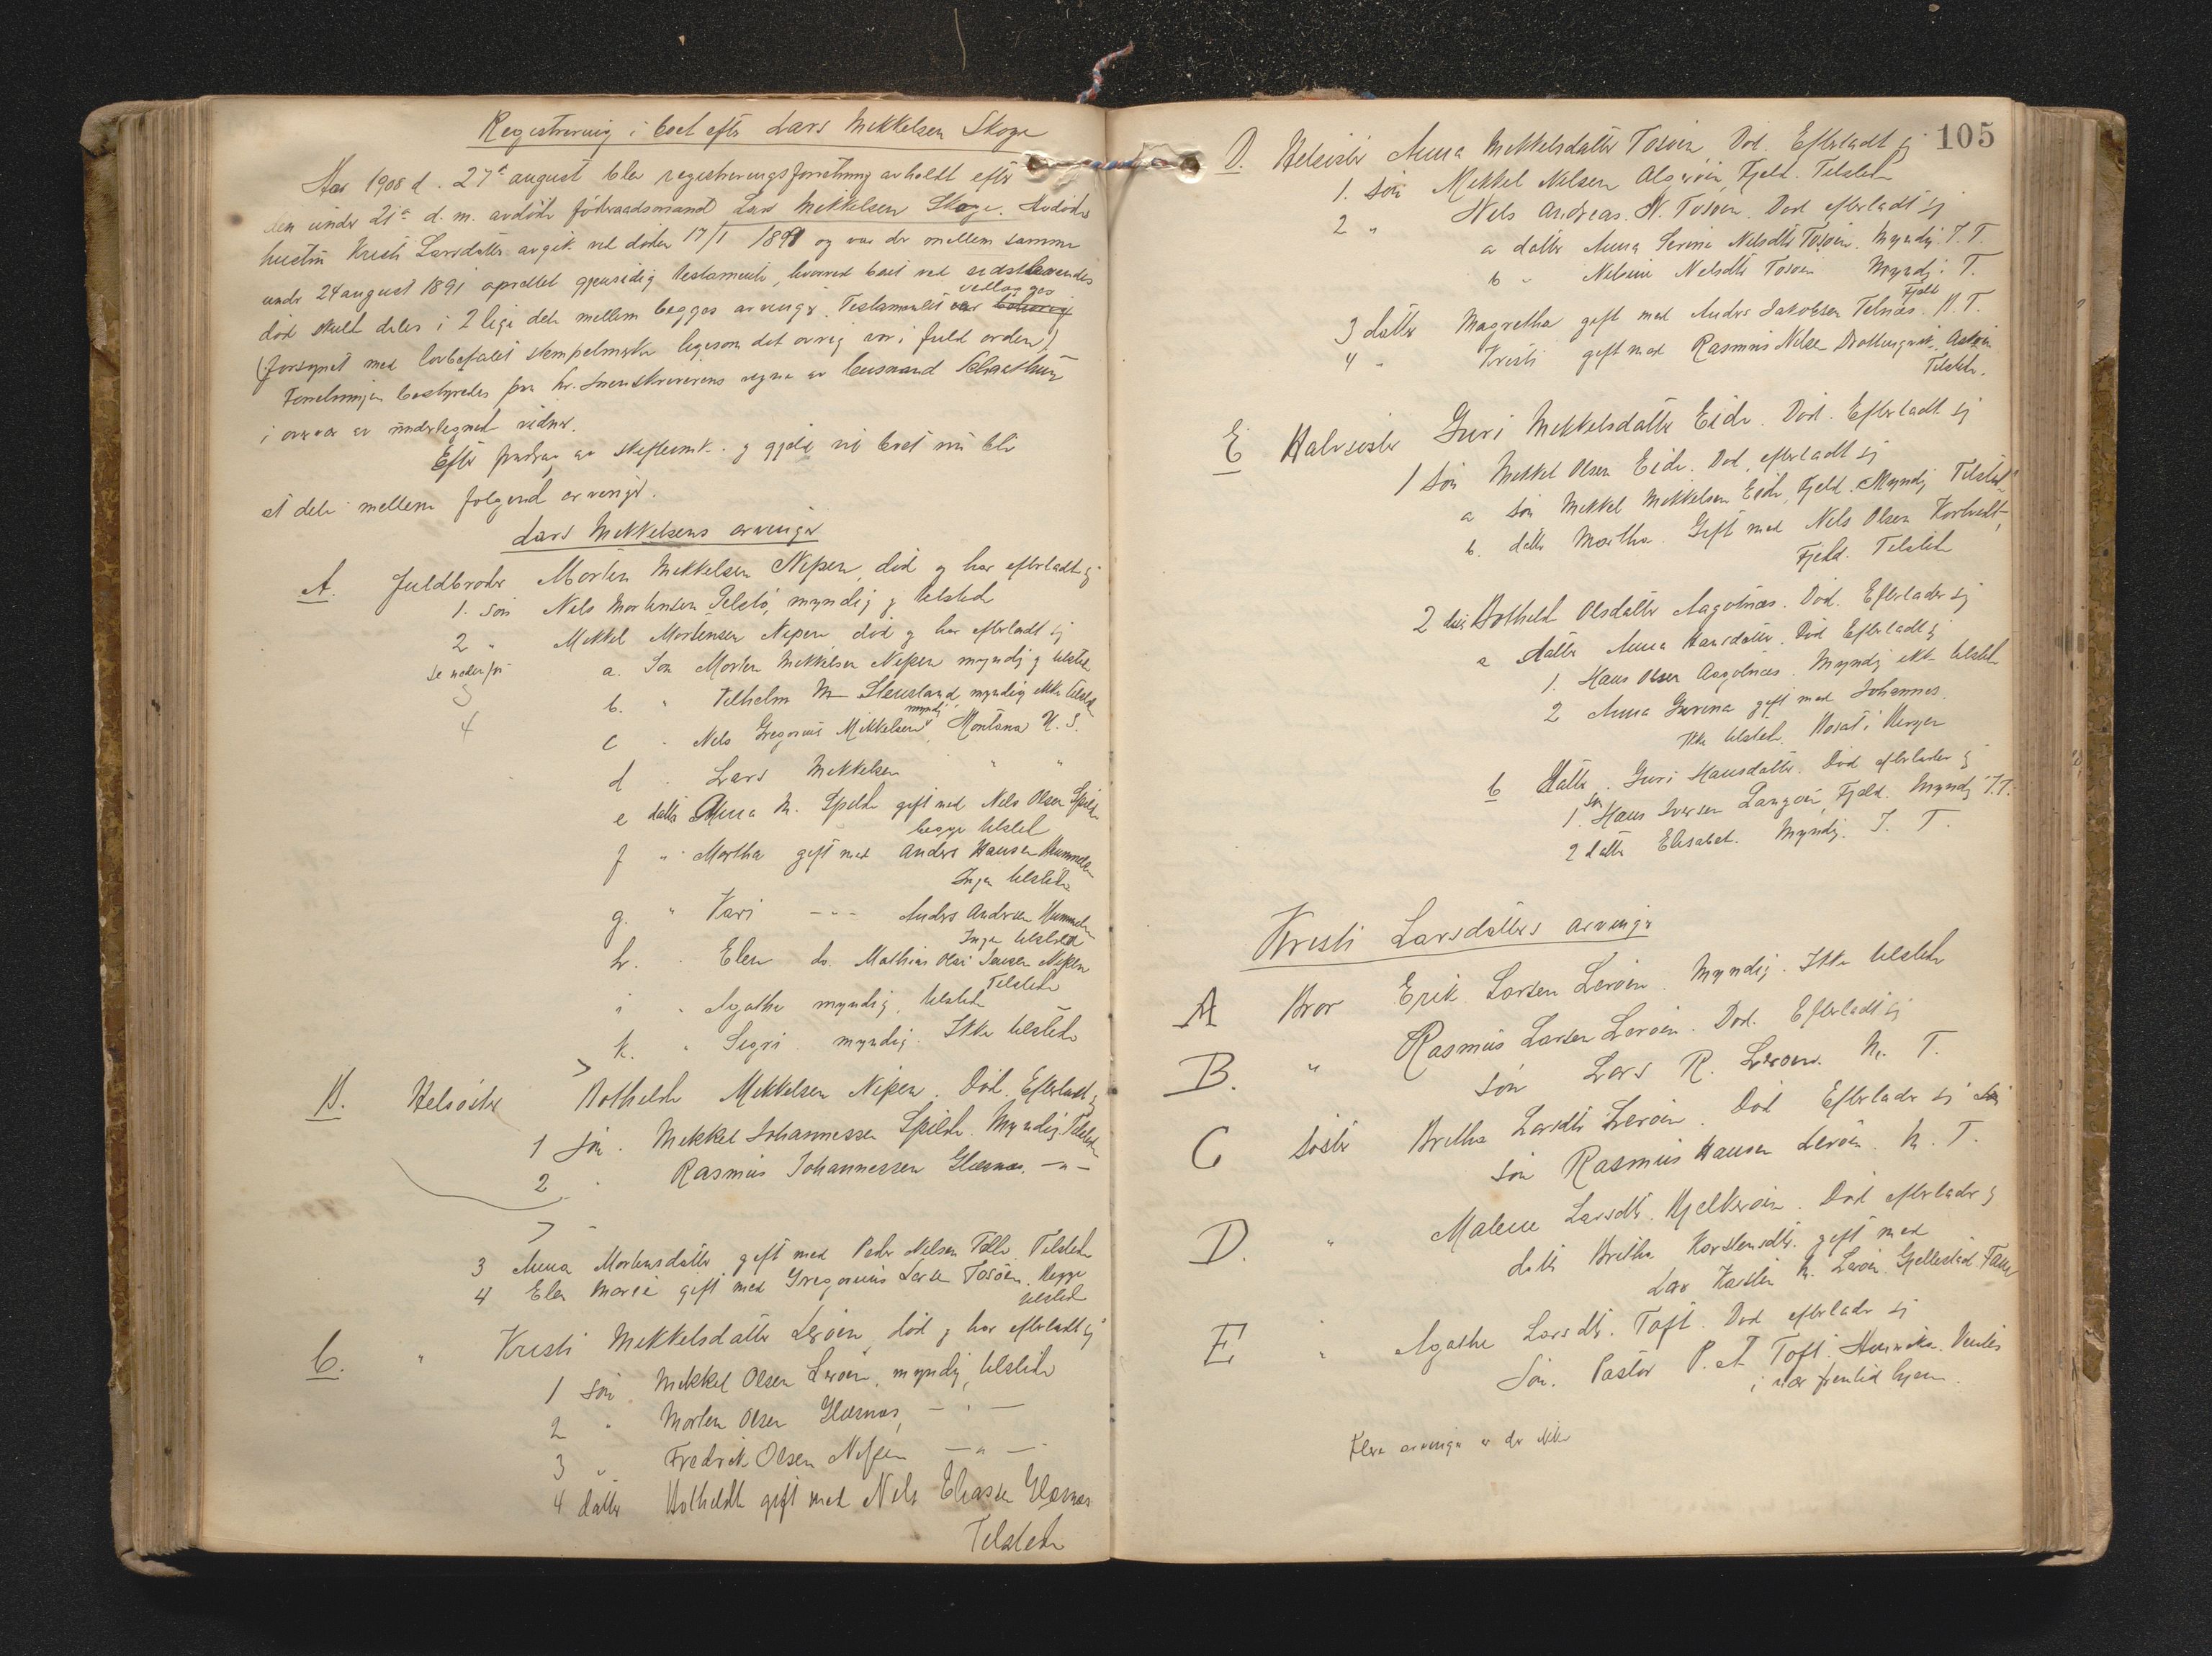 Registrering i boet efter Lars Mikkelsen Skoge
Aar 1908 d. 27de august blev registreringsforretning avholdt efter
den under 21de d. m. avdøde føderaadsmand Lars Mikkelsen Skoge. Avdødes
hustru Kristi Larsdatter avgik ved døden 17/1 1891 og var der mellem samme
under 24 august 1891 oprettet gjensidig testamente, hvorved boet ved sidstlevendes
død skulde deles i 2 lige dele mellem begges arvinger. Testamentet vedlægges
(forsynet med lovbefalet stempelmerke ligesom det øvrig var i fuld orden)
Forretningen bestyredes for hr. sorenskriverens regne av lensmand
i overvær av undertegnede vidner.
Efter fradrag av skifteomk. og gjeld vil boet nu bli
at dele mellem følgende arvinger.
Lars Mikkelsens arvinger
A. Fuldbroder Morten Mikkelsen Nipen, død og har efterladt sig
1. søn Nels Mortensen myndig og tilstede
2 " Mikkel Mortensen Nipen død og har efterladt sig
se nedenfor
3
4
a. Søn Morten Mikkelsen Nipen myndig og tilstede
b. " Vilhelm M Stensland, myndig ikke tilstede
c " Nels Gregorius Mikkelsen myndig, Montana U. S.
d " Lars Mikkelsen " "
e datter Anna M. Spilde gift med Nels Olsen Spilde
begge tilsted
f " Martha gift med Anders Hansen
Ingen tilstede
g. " Kari - - - Anders Andersen
Ingen tilstede
h. " Elen do. Mathias Olai Jensen Nipen
Tilstede
i " Agathe myndig, tilstede
k. " Sigri myndig. Ikke tilstede
B. Helsøster Botheld Mikkelsen Nipen. Død. Efterladt sig
1 søn. Mikkel Johannessen Spilde. Myndig. Tilstede
2 " Rasmus Johannessen Glesnæs. — " —
3 Anna Mortensdatter gift med Peder Nilsen Tilstede
4 Elen Marie gift med Gregorius Larsen Tosøen. Begge
tilsted
C. " Kristi Mikkelsdatter Lerøen, død og har efterladt sig
1 søn Mikkel Olsen Lerøen, myndig, tilstede
2 " Morten Olsen Glesnæs, — " —
3 " Fredrik Olsen Nipen — " —
4 datter Botheld gift med Nels Eliassen Glesnæs
Tilstede
105
D. Helsøster Anna Mikkelsdatter Tosøen, Død. Efterladt sig
1. Søn Mikkel Nilsen Algerøen, Fjeld. Tilsted
2 " Nels Andreas N. Tosøen. Død efterladt sig
a datter Anna Serine Nelsdtr Tosøen. Myndig. I. T.
b " Nelsine Nelsdtr Tosøen Myndig. T.
3 datter Magretha gift med Anders Jakobsen Telnæs. Fjeld M. T.
4 " Kristi gift med Rasmus Nilsen Askøen
Tilstede.
E Halvsøster Guri Mikkelsdatter Eide. Død. Efterladt sig
1 Søn Mikkel Olsen Eide. Død, efterladt sig
a søn Mikkel Mikkelsen Eide, Fjeld. Myndig Tilsted
b. datter Martha. Gift med Nils Olsen Kortvedt,
Fjeld. Tilstede
2 datter Botheld Olsdatter Aagotnæs. Død. Efterlader sig
a datter Anna Hansdatter. Død Efterladt sig
1. Hans Olsen Aagotnæs. Myndig ikke tilsted
2 Anna gift med Johannes.
Ikke tilstede. Bosat i Bergen
b datter. Guri Hansdatter. Død efterlader sig
1. søn Hans Iversen Langøen, Fjeld. Myndig I.T.
2 datter Elisabet. Myndig. I. T.
Kristi Larsdatters arvinger
A Bror Erik Larsen Lerøen. Myndig. Ikke tilstede
B. " Rasmus Larsen Lerøen. Død. Efterladt sig
søn Lars R. Lerøen. M. T.
C Søster Britha Larsdtr Lerøen. Død Efterlader sig
søn Rasmus Hansen Lerøen. M. T.
D. " Malene Larsdtr. Bjelkerøen. Død efterlader sig
dattr Britha Karstensdtr. gift med
Lars Karsten M. Lerøen. Gjellestad. Fane
E " Agathe Larsdtr. Toft. Død efterlader sig
Søn. Pastor P. A. Toft. Amerika. Ventes
i nær fremtid hjem.
Flere arvinger er der ikke